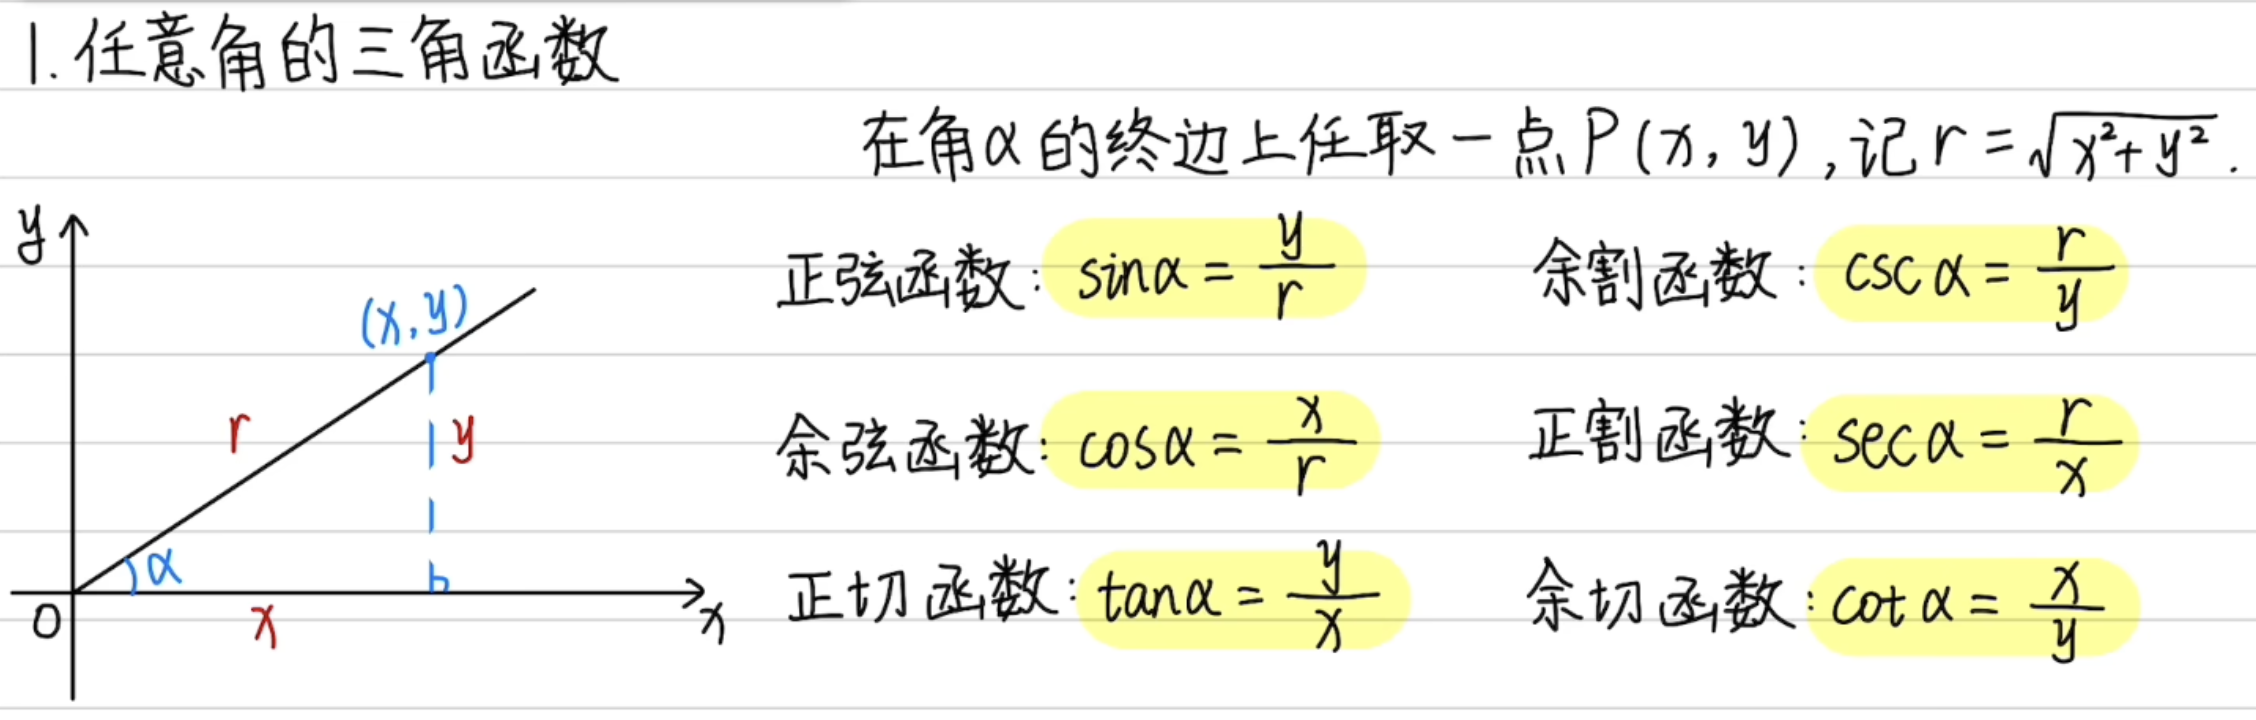 1.任意角的三角函数
在角α的终边上任取一点P(x,y),记r=√(x²+y²).
y
(x,y)
r
y
α
O
x
x
正弦函数: sinα = y/r
余割函数: cscα = r/y
余弦函数: cosα = x/r
正割函数: secα = r/x
正切函数: tanα = y/x
余切函数: cotα = x/y